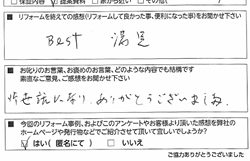 ■リフォームを終えての感想(リフォームして良かった事、便利になった事)をお聞かせ下さい
Best 満足
■お叱りのお言葉、お褒めのお言葉、どのような内容でも結構です
素直なご意見、ご感想をお聞かせ下さい
お世話になり、ありがとうございました。
■今回のリフォーム事例、およびこのアンケートやお客様より頂いた感想を弊社の
ホームページや発行物などでご紹介させて頂いて宜しいでしょうか?
はい(匿名にて) □ いいえ
ご協力ありがとうございました